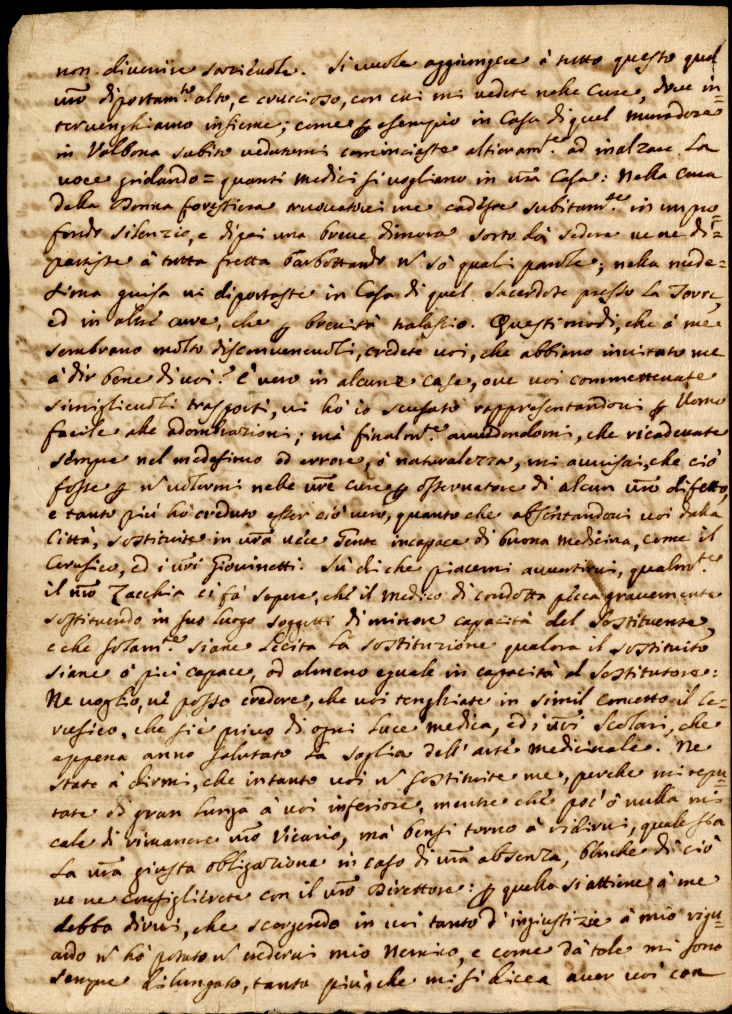 non divenire sazievole. Si vuole aggiungere à tutto questo quel
vrõ diportam.to alto, e cruccioso, con cui mi vedete nelle Cure, dove in=
tervenghiamo insieme; come ꝑ esempio in Casa di quel muradore
in Valbona subito vedutomi cominciaste altieram.te ad inalzare la
voce gridando = quanti medici si vogliano in una Casa: Nella Cura
della Donna forestiera trovatovi me cadeste subitam.te in un pro=
fondo silenzio, e dipoi una breve dimora sorto dà sedere ve ne di=
partiste à tutta fretta barbottando nõ sò quali parole; nella mede=
sima guisa vi diportaste in Casa di quel Sacerdote presso la Torre,
ed in altre cure, che ꝑ brevità tralascio. Questi modi, che à me
sembrano molto disconvenevoli, credete voi, che abbiano invitato me
à dir bene di voi? È vero in alcune case, ove voi commettevate
simiglievoli trasporti, vi hò io scusato rappresentandovi ꝑ Uomo
facile alle adombrazioni; mà finalm.te avvedendomi, che ricadevate
sempre nel medesimo ed errore, ò naturalezza, mi avvisai, che ciò
fosse ꝑ nõ volermi nelle vrẽ cure ꝑ osservatore di alcun vrõ difetto,
e tanto più hò creduto esser ciò vero, quanto che absentandovi voi dalla
Città, sostituite in vrã vece Gente incapace di buona medicina, come il
Cerusico, ed i vrĩ Giovinetti. Su di che piacemi avvertirvi, qualm.te
il nrõ Zacchia ci fà sapere, che il medico di condotta pecca gravemente
sostituendo in suo luogo soggetti di minore capacità del Sostituente,
e che solam.te siane lecita la sostituzione qualora il sostituito
siane ò più capace, od almeno eguale in capacità al Sostitutore:
Ne voglio, nè posso credere, che voi tenghiate in simil concetto il Ce=
rusico, che si è privo di ogni luce medica, ed i vrĩ Scolari, che
appena anno salutato la soglia dell'arte medicinale. Ne
state à dirmi, che intanto voi nõ sostituite me, perche mi repu=
tate di gran lunga à voi inferiore, mentre che poc'ò nulla mi
cale di rimanere vrõ Vicario, mà bensi torno à ridirvi, quale sia
la vrã giusta obligazione in caso di vrã absenza, benche di ciò
ve ne consiglierete con il vrõ Direttore: ꝑ quello si attiene à me
debbo dirvi, che scorgendo in voi tanto d'ingiustizie à mio rigu=
ardo nõ hò potuto nõ credervi mio Nemico, e come dà tale mi sono
sempre dilungato, tanto più, che mi si dicea aver voi con